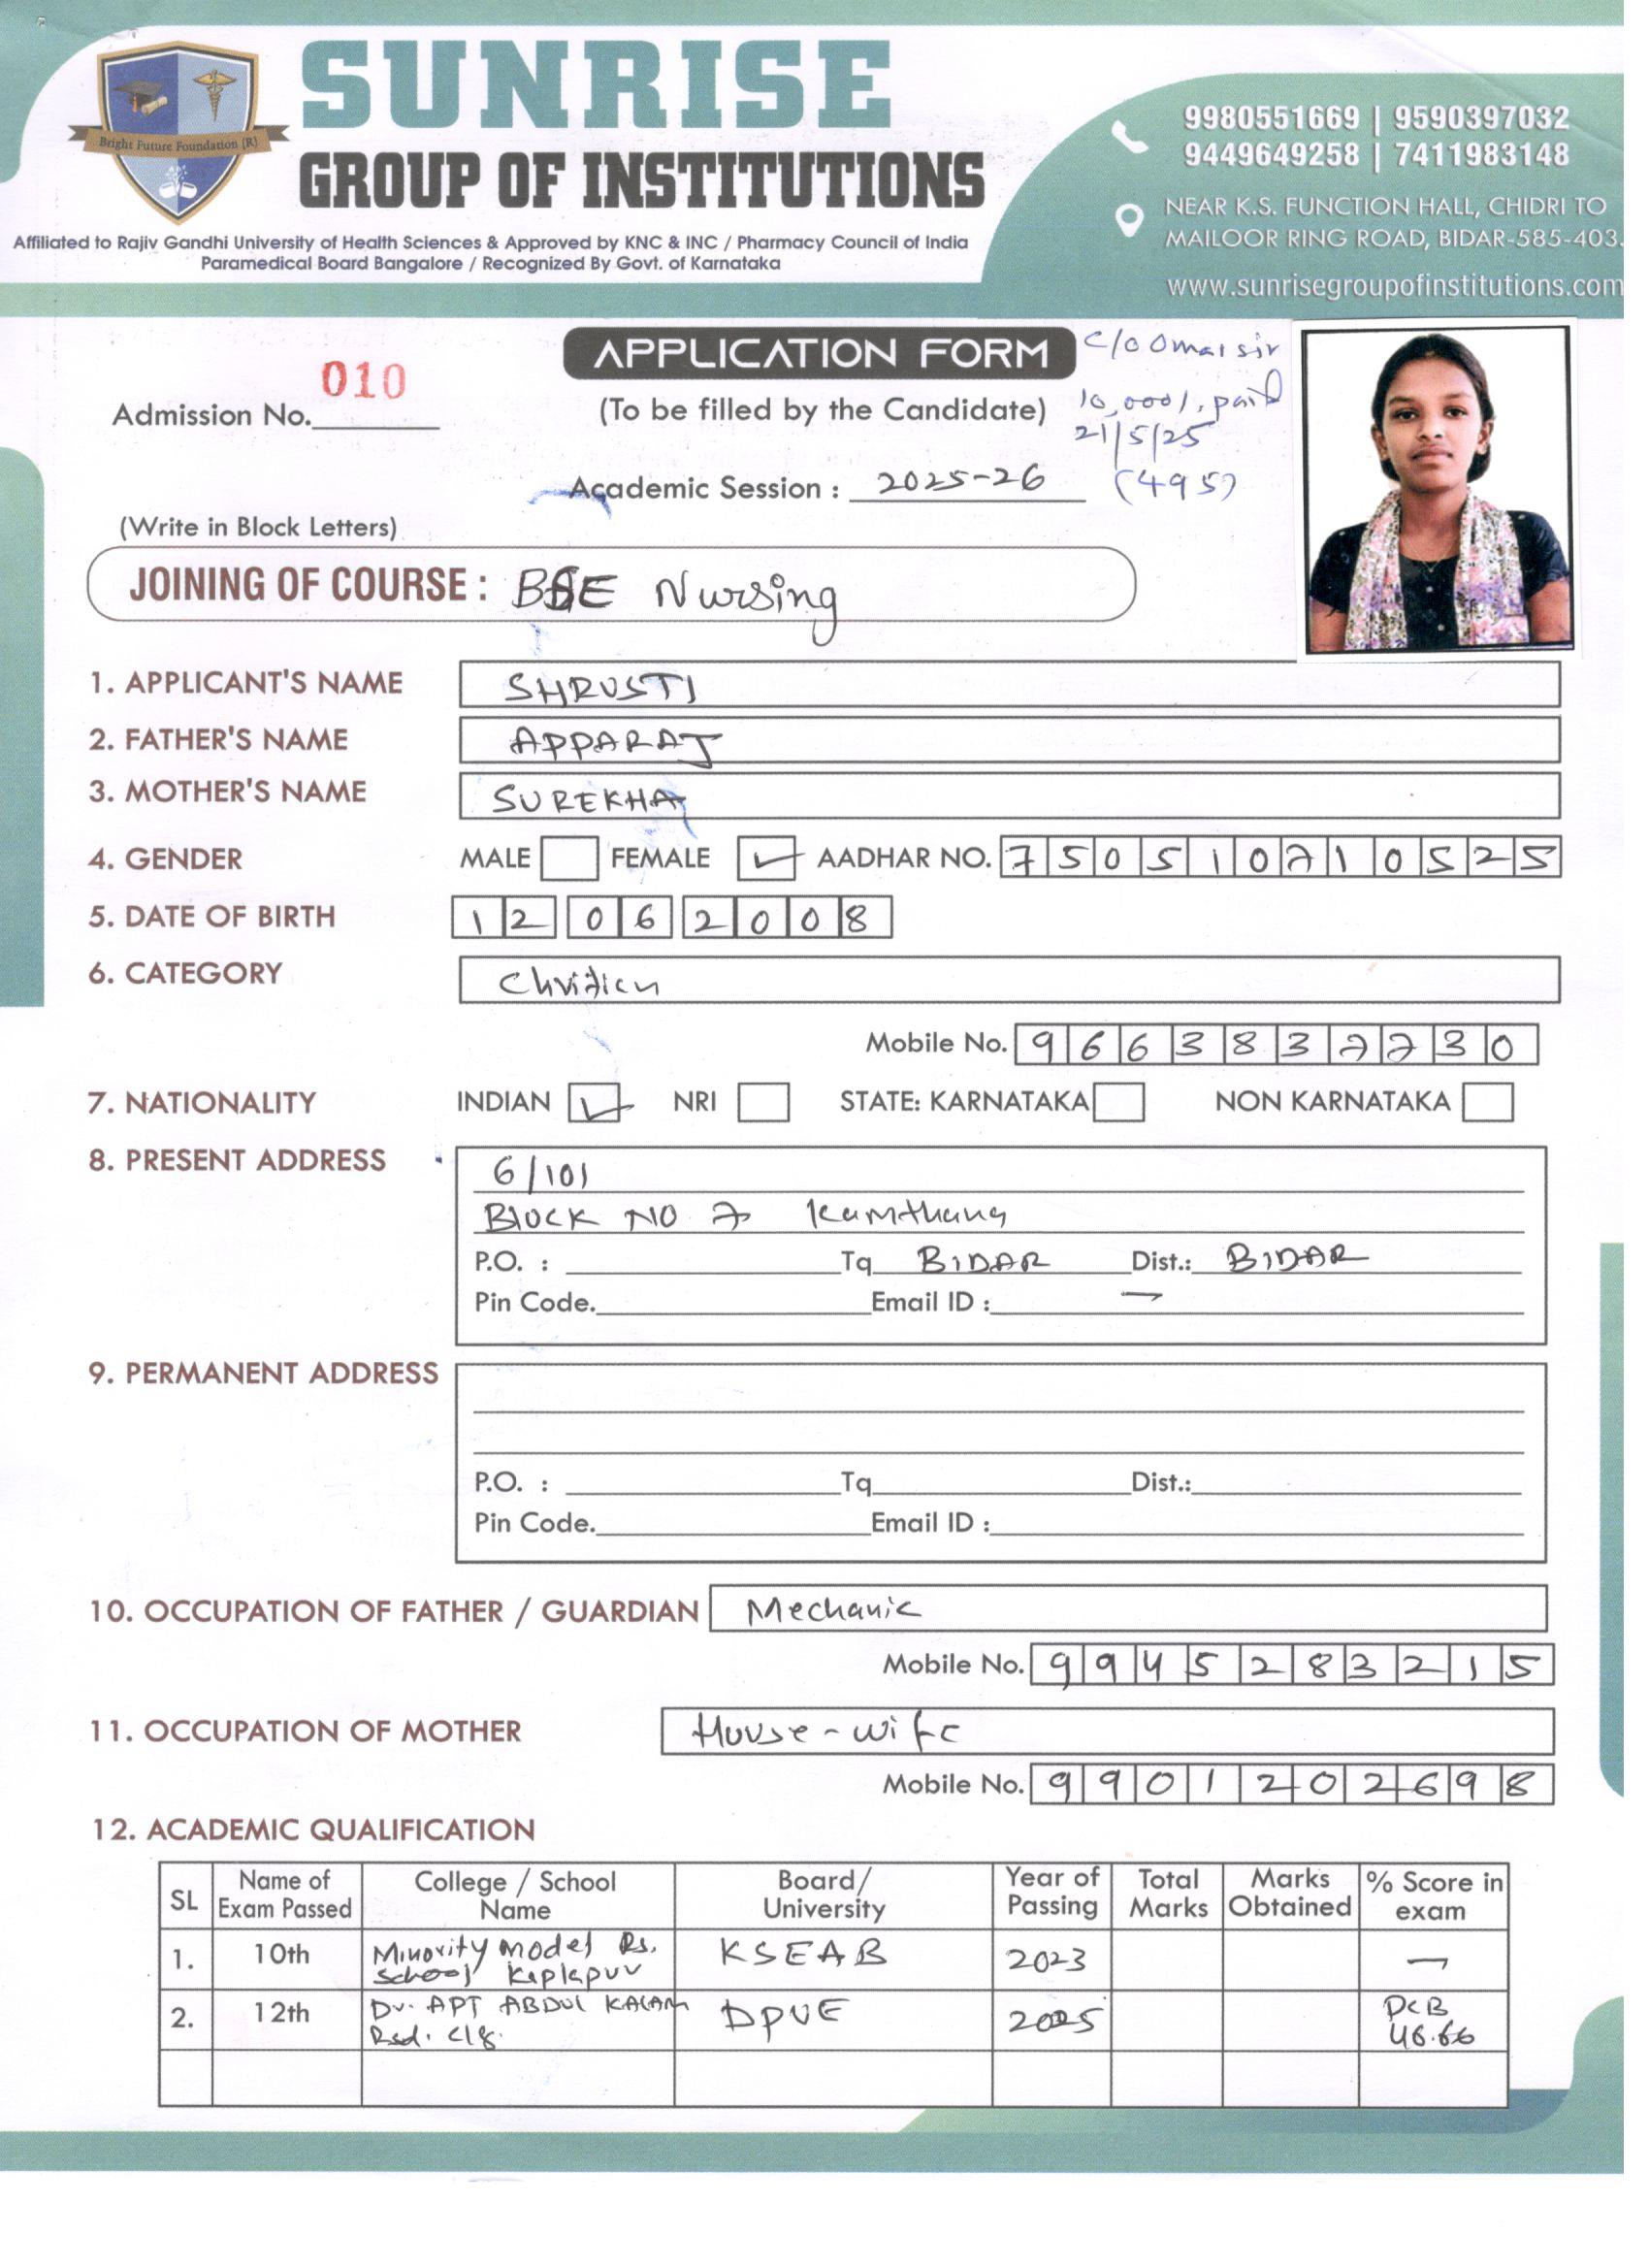 Bright Future Foundation (R)
SUNRISE
GROUP OF INSTITUTIONS
Affiliated to Rajiv Gandhi University of Health Sciences & Approved by KNC & INC / Pharmacy Council of India
Paramedical Board Bangalore / Recognized By Govt. of Karnataka
9980551669 | 9590397032
9449649258 | 7411983148
NEAR K.S. FUNCTION HALL, CHIDRI TO
MAILOOR RING ROAD, BIDAR-585-403.
www.sunrisegroupofinstitutions.com
APPLICATION FORM
C/o Omar sir
Admission No. 010
(To be filled by the Candidate)
10,000/. paid
21/5/25
Academic Session : 2025-26
(495)
(Write in Block Letters)
JOINING OF COURSE : Nursing
1. APPLICANT'S NAME SHRUSTI
2. FATHER'S NAME APPARAJ
3. MOTHER'S NAME SUREKHA
4. GENDER MALE FEMALE ✓ AADHAR NO. 750510710525
5. DATE OF BIRTH 12 06 2008
6. CATEGORY Christian
Mobile No. 9663837730
7. NATIONALITY INDIAN ✓ NRI STATE: KARNATAKA NON KARNATAKA
8. PRESENT ADDRESS 6/101
BLOCK NO 7 Kamthana
P.O. : Tq BIDAR Dist.: BIDAR
Pin Code. Email ID : —
9. PERMANENT ADDRESS
P.O. : Tq Dist.:
Pin Code. Email ID :
10. OCCUPATION OF FATHER / GUARDIAN Mechanic
Mobile No. 9945283215
11. OCCUPATION OF MOTHER House-wife
Mobile No. 9901202698
12. ACADEMIC QUALIFICATION
SL Name of Exam Passed College / School Name Board/ University Year of Passing Total Marks Marks Obtained % Score in exam
1. 10th Minority model Rs. school KSEAB 2023 —
2. 12th Dr. APT ABDUL KALAM Rsd. clg. DPUE 2025 PCB 46.66